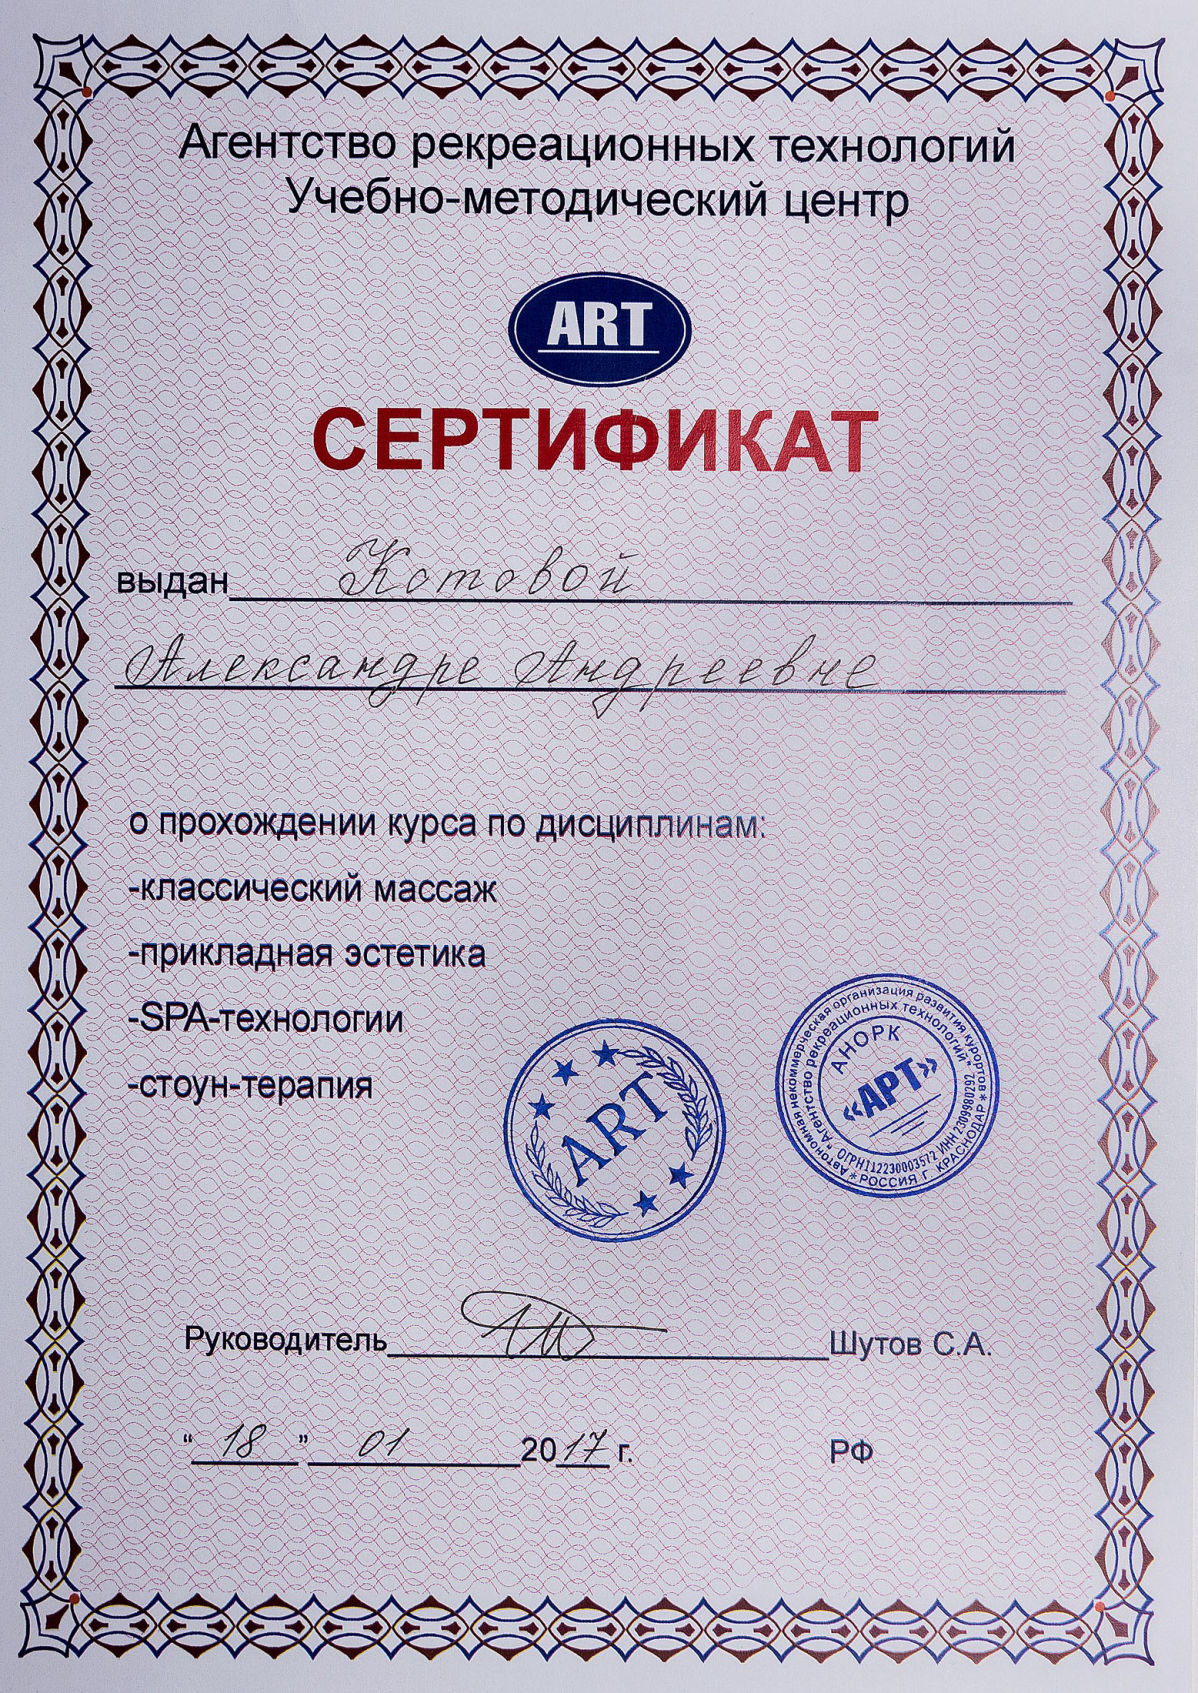 Агентство рекреационных технологий
Учебно-методический центр
ART
СЕРТИФИКАТ
выдан Котовой
Александре Андреевне
о прохождении курса по дисциплинам:
-классический массаж
-прикладная эстетика
-SPA-технологии
-стоун-терапия
ART
Автономная некоммерческая организация развития курортов
"Агентство рекреационных технологий"
АНОРК
«АРТ»
ОГРН112230003572 ИНН 2309980292
*РОССИЯ Г. КРАСНОДАР*
Руководитель Шутов С.А.
“ 18 ” 01 2017 г. РФ